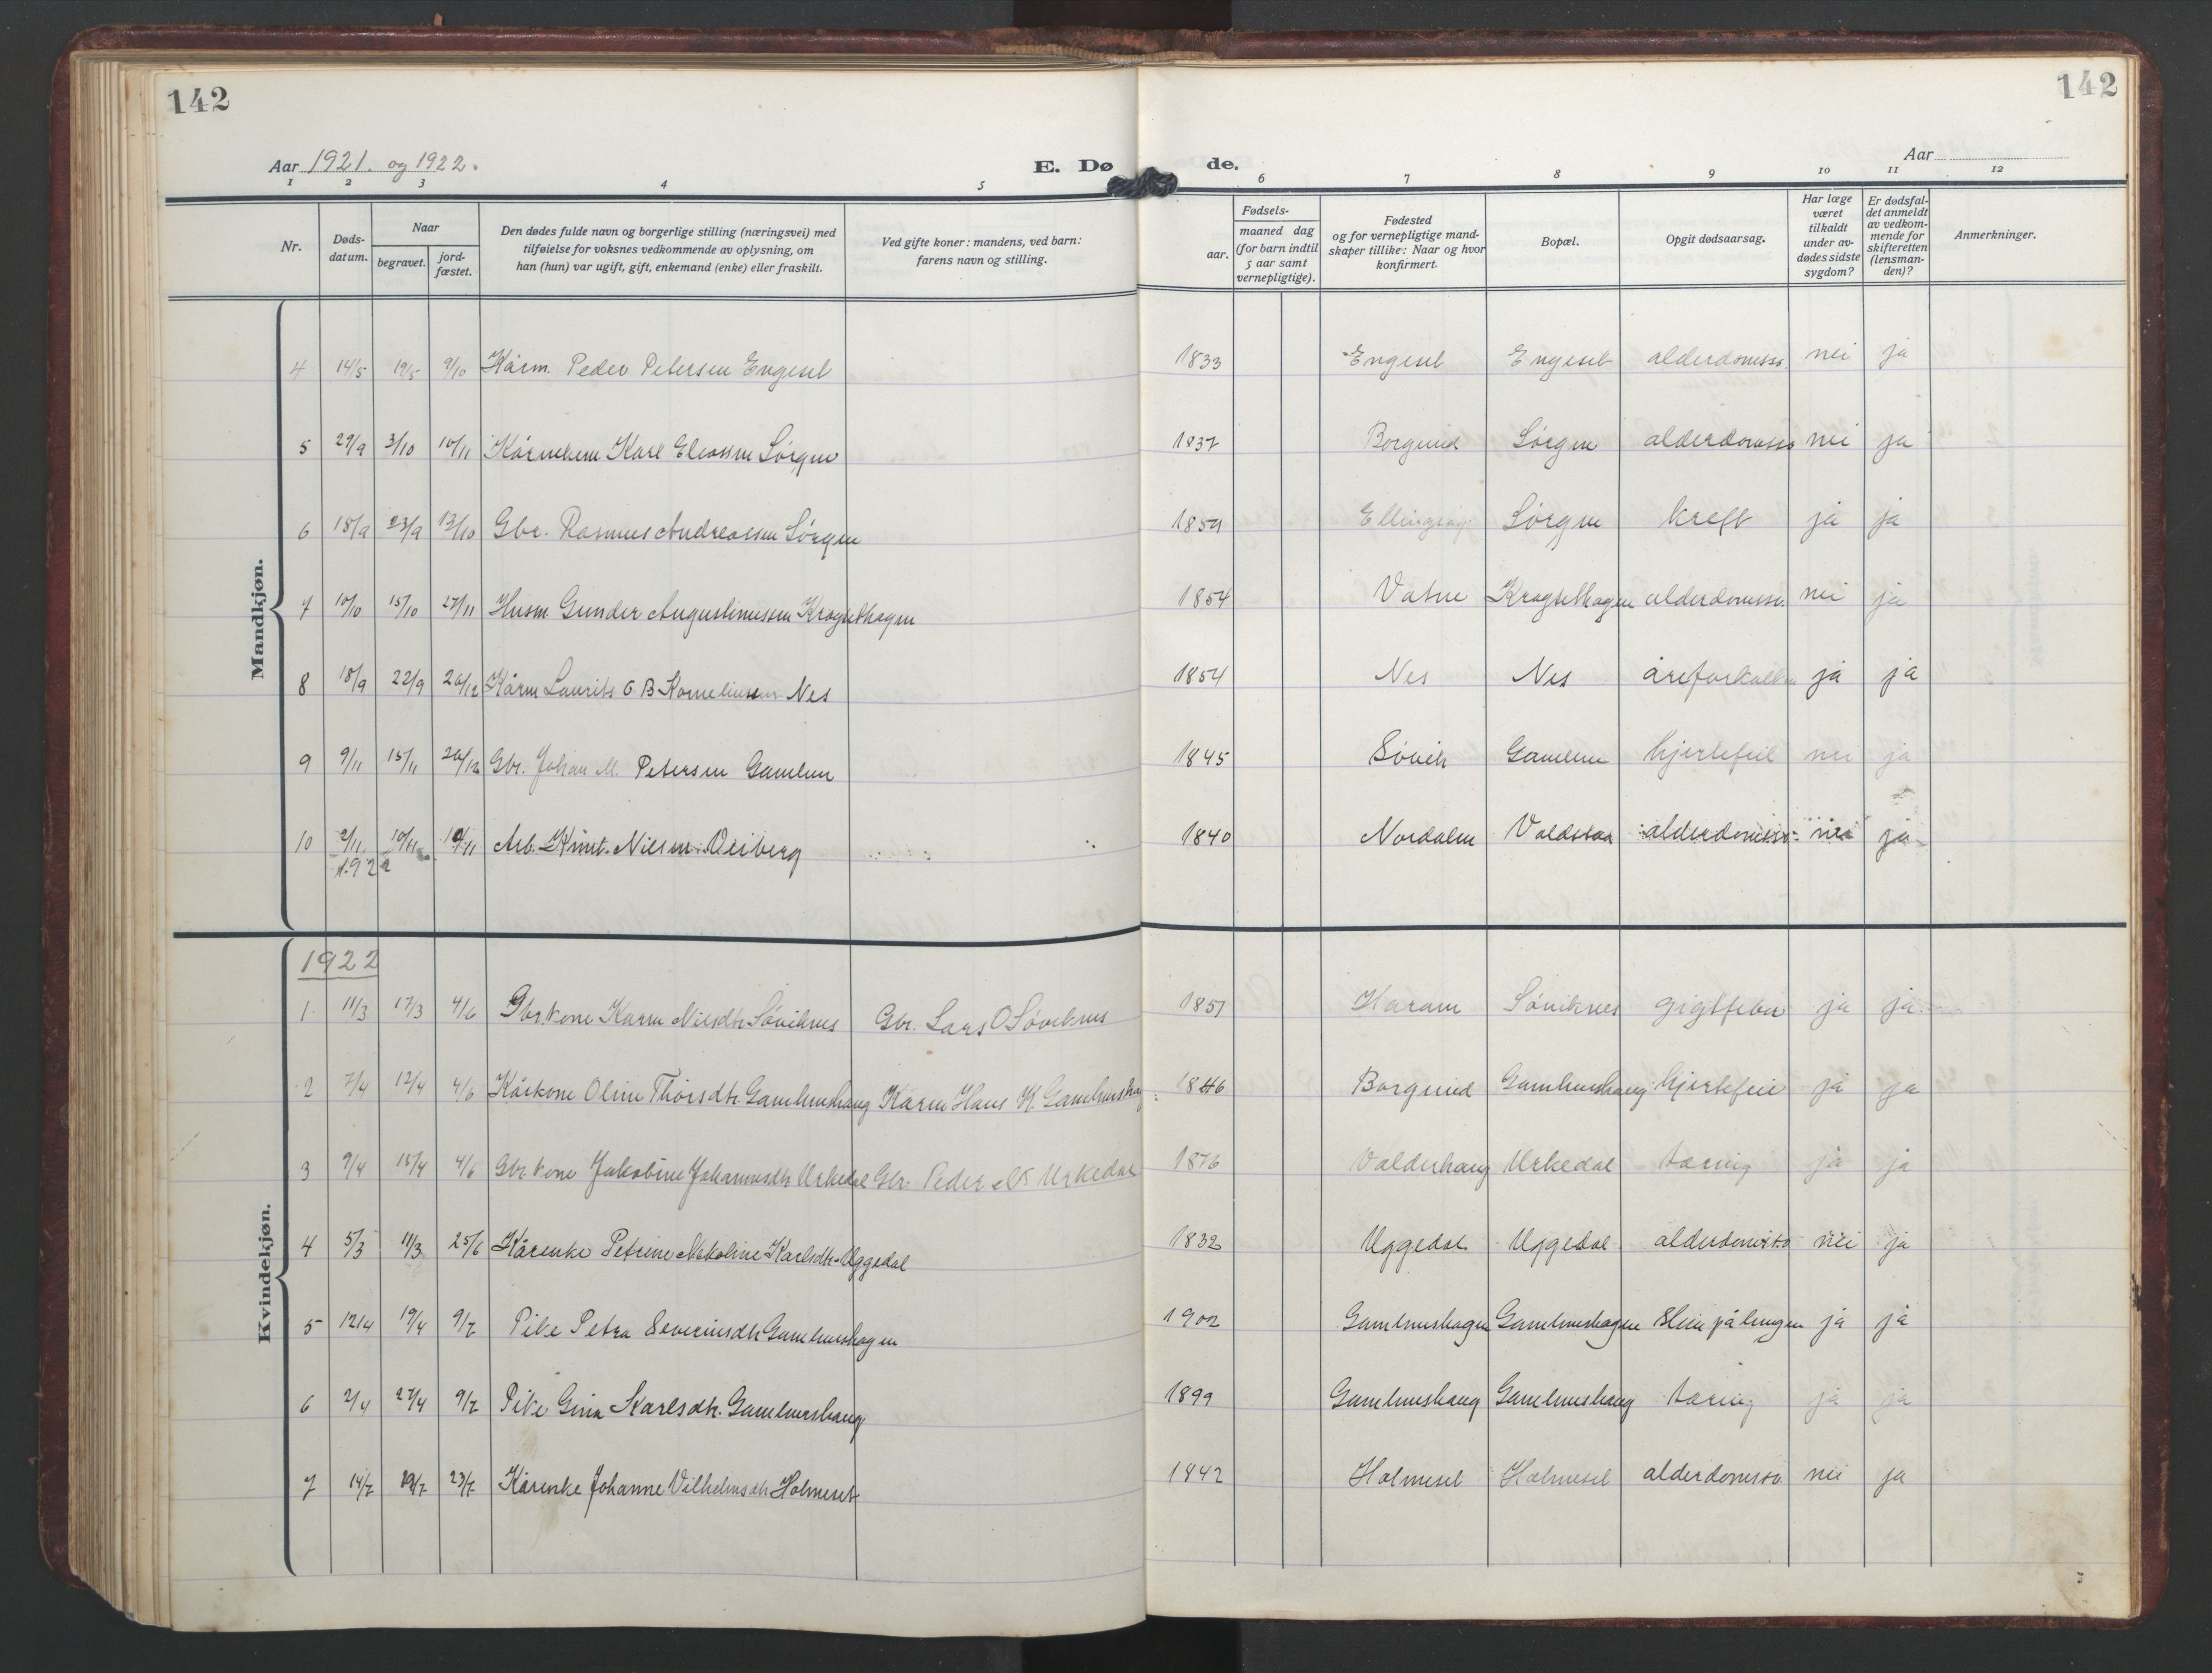 142
142
Aar 1921. og 1922.
E. Dø
de.
Aar
1 2 3 4 5 6 7 8 9 10 11 12
Nr.
Døds-
datum.
Naar
begravet.
jord-
fæstet.
Den dødes fulde navn og borgerlige stilling (næringsvei) med
tilføielse for voksnes vedkommende av oplysning, om
han (hun) var ugift, gift, enkemand (enke) eller fraskilt.
Ved gifte koner: mandens, ved barn:
farens navn og stilling.
Fødsels-
aar.
maaned dag
(for barn indtil
5 aar samt
vernepligtige).
Fødested
og for vernepligtige mand-
skaper tillike: Naar og hvor
konfirmert.
Bopæl.
Opgit dødsaarsag.
Har læge
været
tilkaldt
under av-
dødes sidste
sygdom?
Er dødsfal-
det anmeldt
av vedkom-
mende for
skifteretten
(lensman-
den)?
Anmerkninger.
Mandkjøn.
4 14/5 19/5 9/10 Kårm. Peder Petersen Engeset 1833 Engeset Engeset alderdomss. nei ja
5 29/9 3/10 10/11 Karl Eliassen Sørgen 1837 Borgund Sørgen alderdomss nei ja
6 18/9 23/9 13/10 Gbr. Rasmus Andreassen Sørgen 1859 Sørgen kreft ja ja
7 10/10 15/10 27/11 Husm. Gunder Augustinussen Krogsethagen 1854 Vatne Krogsethagen alderdomss. nei ja
8 18/9 22/9 26/12 Kårm Laurits O B Korneliussen Nes 1854 Nes Nes åreforkalkn ja ja
9 9/11 15/11 26/12 Gbr. Johan M. Petersen Gamlem 1845 Søvik Gamlem hjertefeil nei ja
10 2/11 10/11 Arb. Knut Nilsen Veiberg 1840 Nordalen alderdomss. nei ja
1922
Kvindekjøn.
1922
1 11/3 17/3 4/6 Gbrkone Karen Nilsdtr Søviknes Gbr. Lars O Søviknes 1851 Haram Søviknes gigtfeber ja ja
2 7/4 12/4 4/6 Kårkone Oline Thorsdtr. Gamlemshaug Kårm Hans K Gamlemshaug 1846 Borgund Gamlemshaug hjertefeil ja ja
3 9/4 15/4 4/6 Gbrkone Jakobine Johannesdtr Urkedal Gbr. Peder N Urkedal 1876 Valderhaug Urkedal tæring ja ja
4 5/3 11/3 25/6 Kårenke Petrine Nikoline Karlsdtr. Uggedal 1832 Uggedal Uggedal alderdomss nei ja
5 12/4 19/4 9/7 Pike Petra Severinsdtr Gamlemshagen 1902 Gamlemshagen Gamlemshagen Slim på lungen ja ja
6 2/4 27/4 9/7 Pike Gina Karlsdtr. Gamlemshaug 1899 Gamlemshaug Gamlemshaug tæring ja ja
7 14/7 19/7 23/7 Kårenke Johanne Vilhelmsdtr Holmeset 1842 Holmeset Holmeset alderdomss nei ja